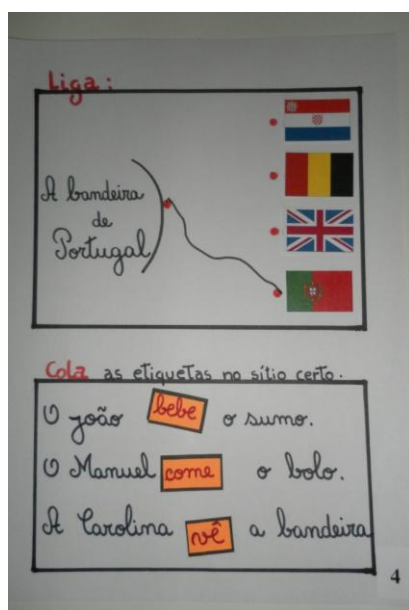 Liga:
A bandeira
de
Portugal
Cola as etiquetas no sítio certo.
O joão bebe o sumo.
O Manuel come o bolo.
A Carolina vê a bandeira
4